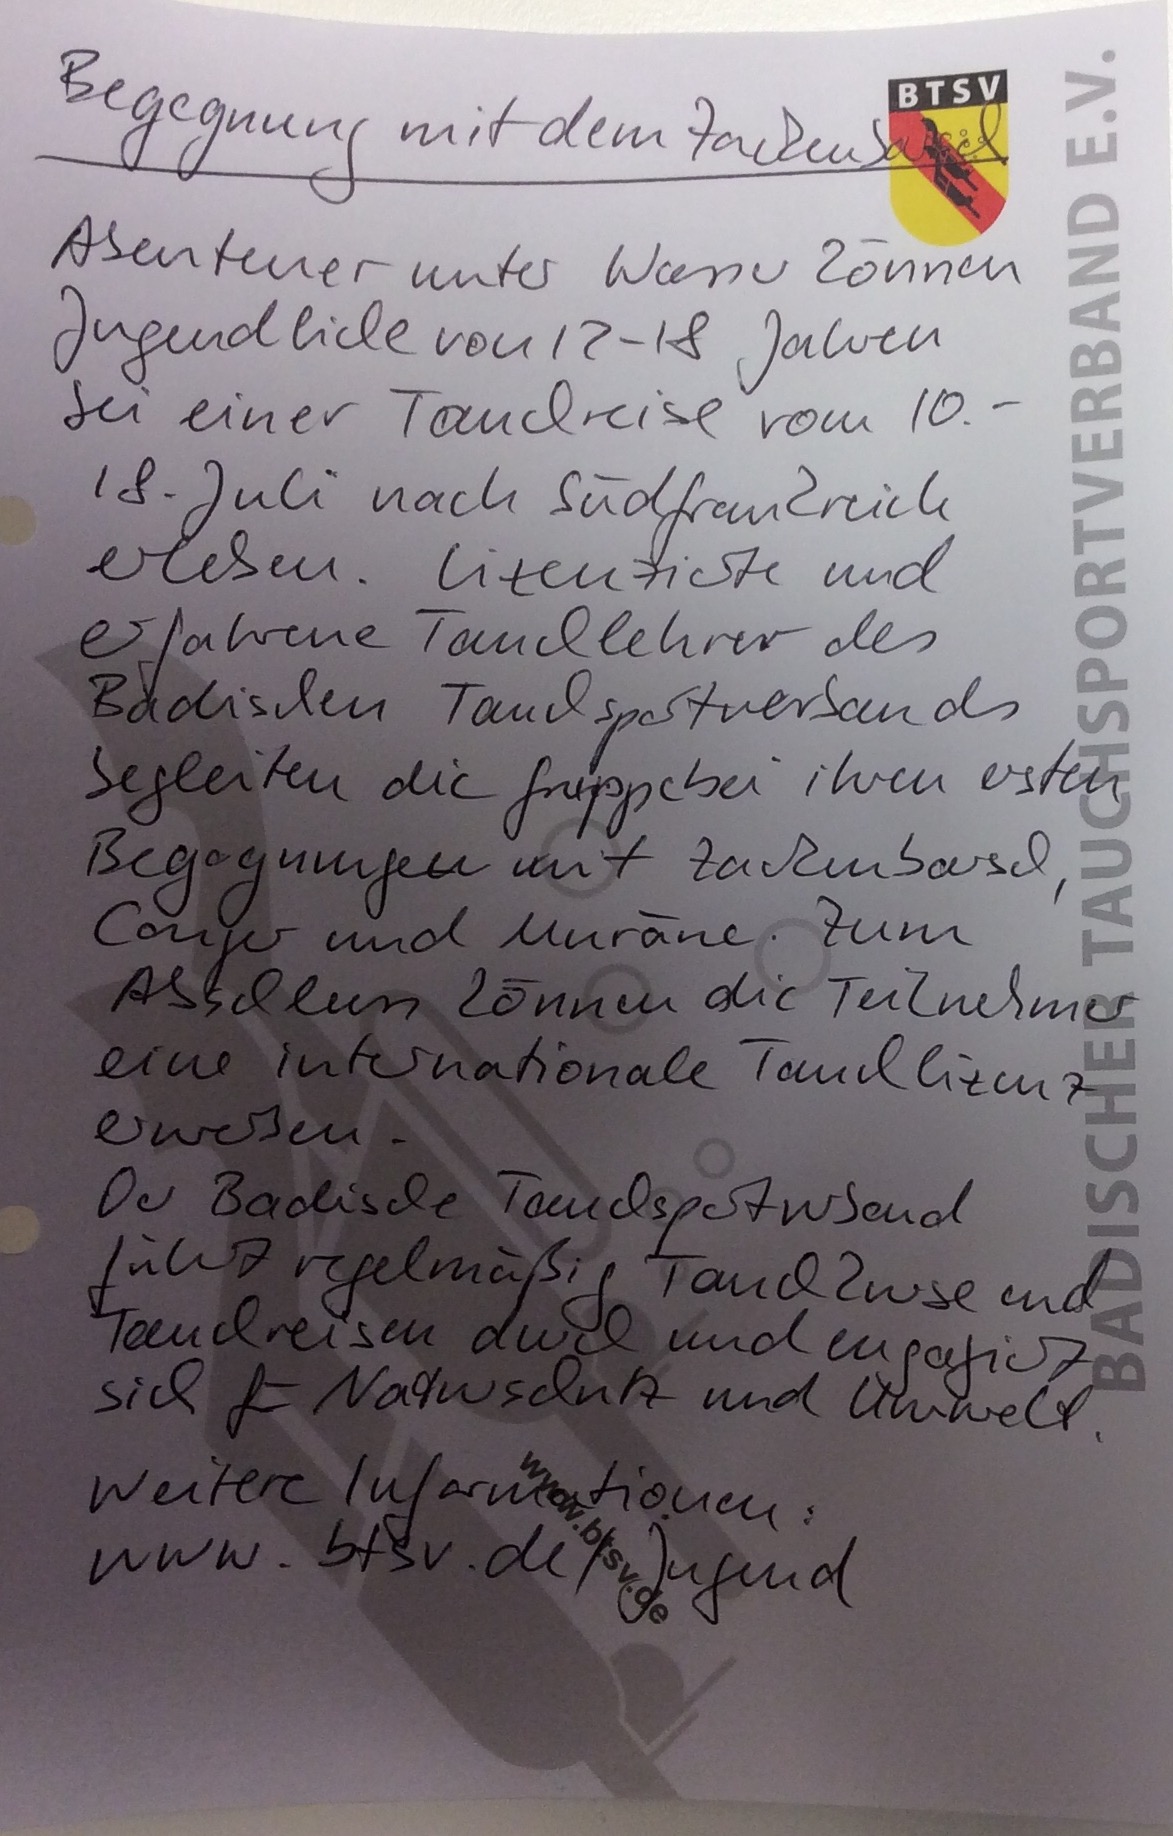 Begegnung mit dem Zackenbarsch
BTSV
Abenteuer unter Wasser können
Jugendliche von 12-18 Jahren
bei einer Tauchreise vom 10.-
18. Juli nach Südfrankreich
erleben. Lizenzierte und
erfahrene Tauchlehrer des
Badischen Tauchsportverbands
begleiten die Gruppe bei ihren ersten
Begegnungen mit Zackenbarsch,
Conger und Muräne. Zum
Abschluss können die Teilnehmer
eine internationale Tauchlizenz
erwerben.
Der Badische Tauchsportverband
führt regelmäßig Tauchkurse und
Tauchreisen durch und engagiert
sich f. Naturschutz und Umwelt.
Weitere Informationen:
www.btsv.de/Jugend
www.btsv.de
BADISCHER TAUCHSPORTVERBAND E.V.